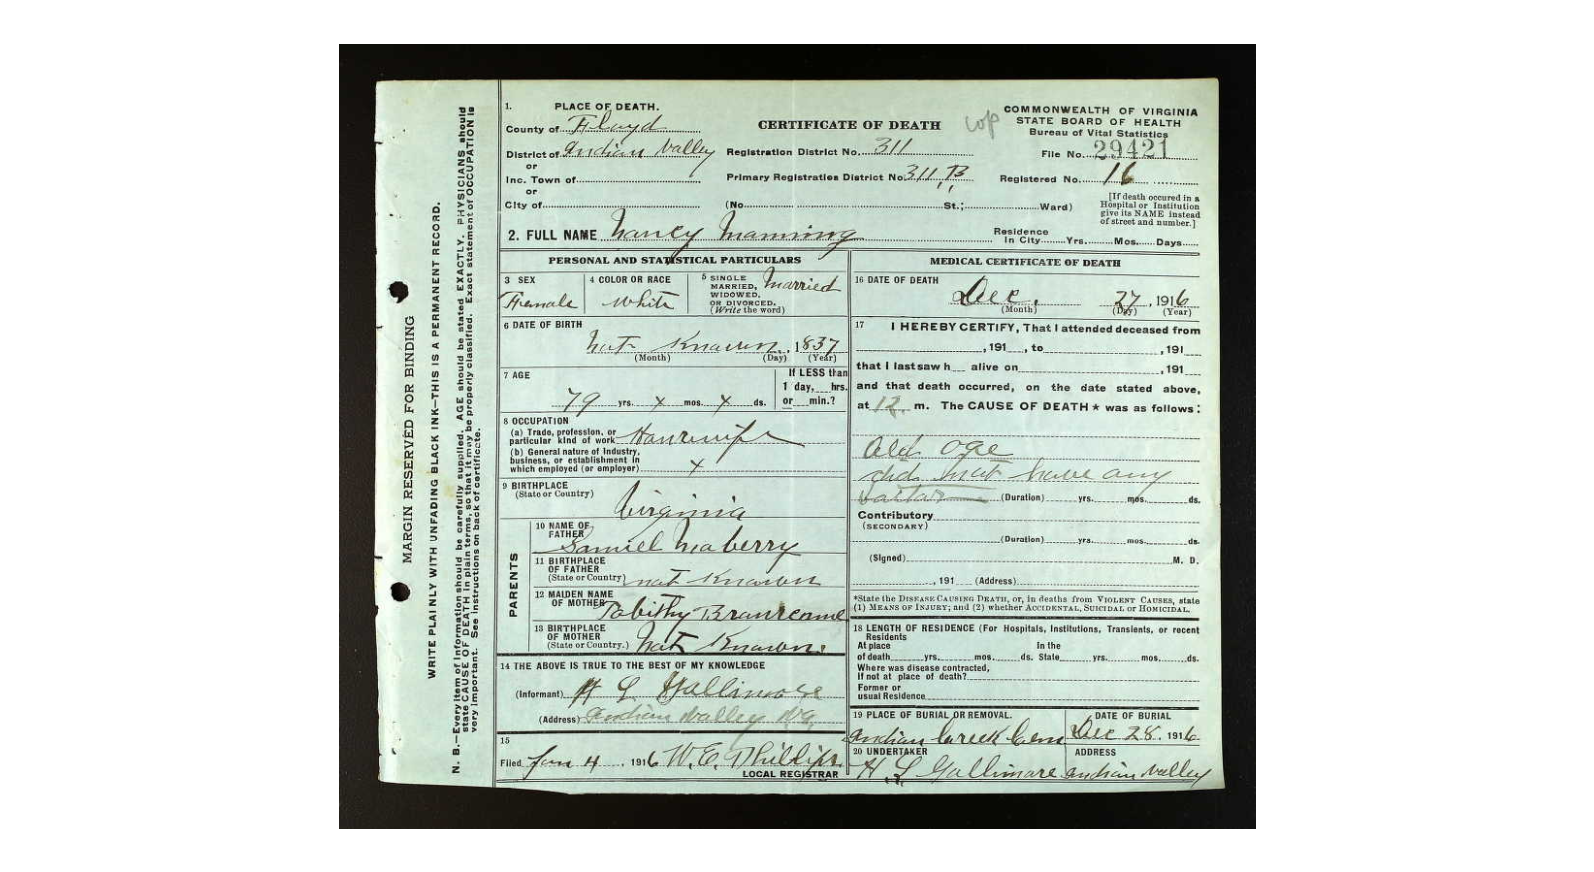 MARGIN RESERVED FOR BINDING
WRITE PLAINLY WITH UNFADING BLACK INK—THIS IS A PERMANENT RECORD.
N. B.—Every item of information should be carefully supplied. AGE should be stated EXACTLY. PHYSICIANS should
state CAUSE OF DEATH in plain terms, so that it may be properly classified. Exact statement of OCCUPATION is
very important. See instructions on back of certificate.
1. PLACE OF DEATH.
County of Floyd
District of Indian Valley
or
Inc. Town of
or
City of
CERTIFICATE OF DEATH
cop
Registration District No. 311
Primary Registration District No. 311, B
(No. St.; Ward)
COMMONWEALTH OF VIRGINIA
STATE BOARD OF HEALTH
Bureau of Vital Statistics
File No. 29421
Registered No. 16
[If death occured in a
Hospital or Institution
give its NAME instead
of street and number.]
2. FULL NAME Nancy Manning
Residence
In City Yrs. Mos. Days
PERSONAL AND STATISTICAL PARTICULARS
3 SEX
Female
4 COLOR OR RACE
White
5 SINGLE
MARRIED,
WIDOWED,
OR DIVORCED.
(Write the word)
Married
6 DATE OF BIRTH
Not Known, 1837
(Month) (Day) (Year)
7 AGE
79 yrs. x mos. x ds.
If LESS than
1 day, hrs.
or min.?
8 OCCUPATION
(a) Trade, profession, or
particular kind of work Housewife
(b) General nature of Industry,
business, or establishment in
which employed (or employer) x
9 BIRTHPLACE
(State or Country)
Virginia
PARENTS
10 NAME OF
FATHER
Samuel Maberry
11 BIRTHPLACE
OF FATHER
(State or Country) not Known
12 MAIDEN NAME
OF MOTHER Tabithy
13 BIRTHPLACE
OF MOTHER
(State or Country.) Not Known.
14 THE ABOVE IS TRUE TO THE BEST OF MY KNOWLEDGE
(Informant) H L Gallimore
(Address) Indian Valley Va,
15
Filed Jan 4, 1916 W. E. Phillips
LOCAL REGISTRAR
MEDICAL CERTIFICATE OF DEATH
16 DATE OF DEATH
Dec. 27, 1916
(Month) (Day) (Year)
17 I HEREBY CERTIFY, That I attended deceased from
, 191 , to , 191
that I last saw h alive on , 191
and that death occurred, on the date stated above,
at 12 m. The CAUSE OF DEATH * was as follows:
Old age
did not have any
doctor (Duration) yrs. mos. ds.
Contributory
(SECONDARY)
(Duration) yrs. mos. ds.
(Signed) M. D.
, 191 (Address)
*State the DISEASE CAUSING DEATH, or, in deaths from VIOLENT CAUSES, state
(1) MEANS OF INJURY; and (2) whether ACCIDENTAL, SUICIDAL or HOMICIDAL.
18 LENGTH OF RESIDENCE (For Hospitals, Institutions, Transients, or recent
Residents
At place In the
of death yrs. mos. ds. State yrs. mos. ds.
Where was disease contracted,
If not at place of death?
Former or
usual Residence
19 PLACE OF BURIAL OR REMOVAL.
Indian Creek Cem
DATE OF BURIAL
Dec 28, 1916
20 UNDERTAKER
H. L Gallimore
ADDRESS
Indian Valley